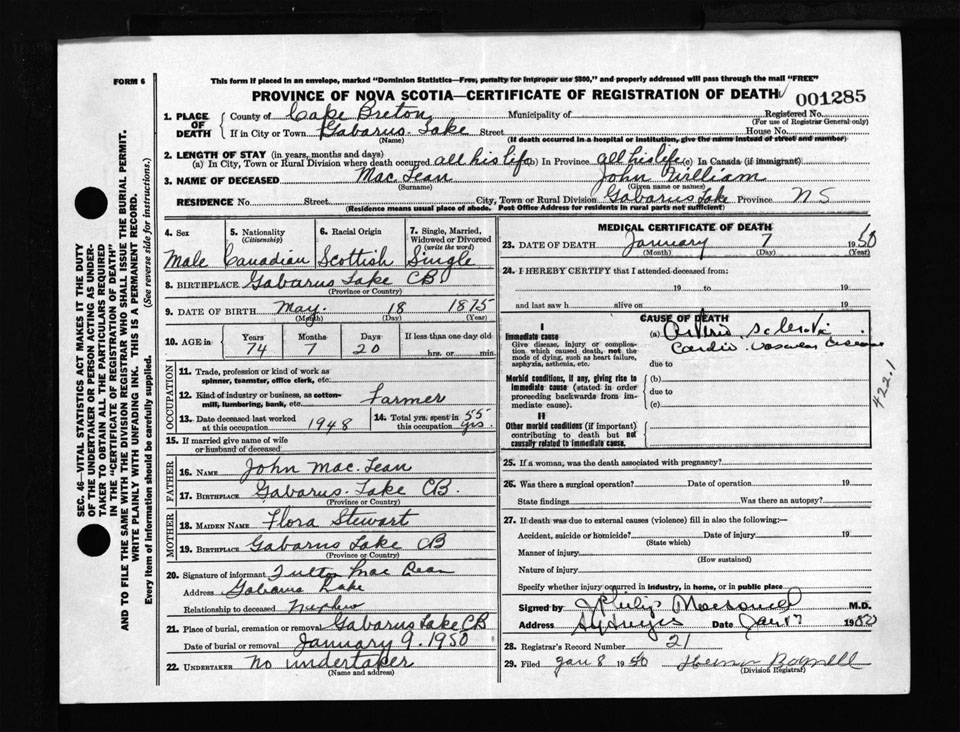 FORM 6
This form if placed in an envelope, marked "Dominion Statistics—Free, penalty for improper use $300," and properly addressed will pass through the mail "FREE"
PROVINCE OF NOVA SCOTIA—CERTIFICATE OF REGISTRATION OF DEATH
001285
1. PLACE OF DEATH
County of Cape Breton Municipality of Registered No.
(For use of Registrar General only)
If in City or Town Gabarus Lake Street House No.
(Name) (If death occurred in a hospital or institution, give the name instead of street and number)
2. LENGTH OF STAY (in years, months and days)
(a) In City, Town or Rural Division where death occurred all his life (b) In Province all his life (c) In Canada (if immigrant)
3. NAME OF DECEASED Mac Lean John William
(Surname) (Given name or names)
RESIDENCE No. Street City, Town or Rural Division Gabarus Lake Province N S
(Residence means usual place of abode. Post Office Address for residents in rural parts not sufficient)
4. Sex
Male
5. Nationality (Citizenship)
Canadian
6. Racial Origin
Scottish
7. Single, Married, Widowed or Divorced (write the word)
Single
8. BIRTHPLACE Gabarus Lake CB
(Province or Country)
9. DATE OF BIRTH May 18 1875
(Month) (Day) (Year)
10. AGE in Years Months Days If less than one day old
74 7 20 hrs. or min.
OCCUPATION
11. Trade, profession or kind of work as spinner, teamster, office clerk, etc.
12. Kind of industry or business, as cotton-mill, lumbering, bank, etc. Farmer
13. Date deceased last worked at this occupation 1948
14. Total yrs. spent in this occupation 55 yrs.
15. If married give name of wife or husband of deceased
FATHER
16. NAME John Mac Lean
17. BIRTHPLACE Gabarus Lake CB.
(Province or Country)
MOTHER
18. MAIDEN NAME Flora Stewart
19. BIRTHPLACE Gabarus Lake CB
(Province or Country)
20. Signature of informant Fulton Mac Lean
Address Gabarus Lake
Relationship to deceased Nephew
21. Place of burial, cremation or removal Gabarus Lake CB
Date of burial or removal January 9. 1950
22. UNDERTAKER no undertaker
(Name and address)
MEDICAL CERTIFICATE OF DEATH
23. DATE OF DEATH January 7 1950
(Month) (Day) (Year)
24. I HEREBY CERTIFY that I attended deceased from:
19 to 19
and last saw h alive on 19
CAUSE OF DEATH
I
Immediate cause
Give disease, injury or complication which caused death, not the mode of dying, such as heart failure, asphyxia, asthenia, etc.
(a) Arterio sclerotic
cardio-vascular disease
due to
422.1
Morbid conditions, if any, giving rise to immediate cause (stated in order proceeding backwards from immediate cause).
(b)
due to
(c)
II
Other morbid conditions (if important) contributing to death but not causally related to immediate cause.
25. If a woman, was the death associated with pregnancy?
26. Was there a surgical operation? Date of operation 19
State findings Was there an autopsy?
27. If death was due to external causes (violence) fill in also the following:—
Accident, suicide or homicide? Date of injury 19
(State which)
Manner of injury
(How sustained)
Nature of injury
Specify whether injury occurred in industry, in home, or in public place
Signed by Philip M.D.
Address Date Jan 1950
28. Registrar's Record Number 21
29. Filed Jan 8 1950
(Division Registrar)
SEC. 46—VITAL STATISTICS ACT MAKES IT THE DUTY
OF THE UNDERTAKER OR PERSON ACTING AS UNDER-
TAKER TO OBTAIN ALL THE PARTICULARS REQUIRED
IN THE "CERTIFICATE OF REGISTRATION OF DEATH"
AND TO FILE THE SAME WITH THE DIVISION REGISTRAR WHO SHALL ISSUE THE BURIAL PERMIT.
WRITE PLAINLY WITH UNFADING INK. THIS IS A PERMANENT RECORD.
Every item of information should be carefully supplied. (See reverse side for instructions.)